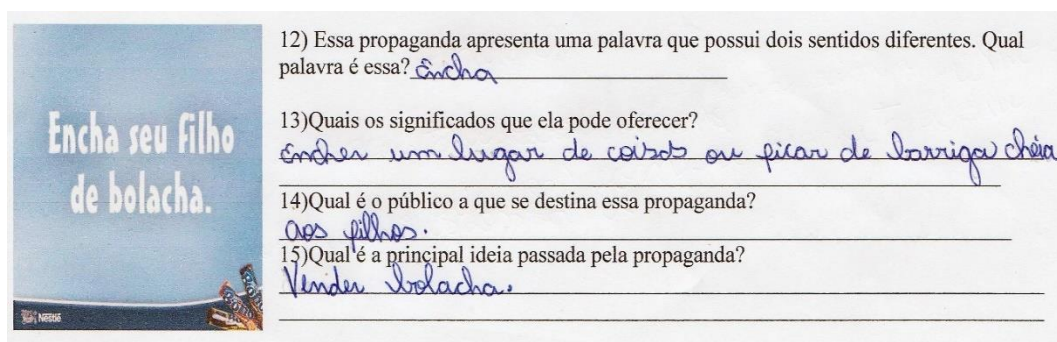 Encha seu filho
de bolacha.
Nestlé
12) Essa propaganda apresenta uma palavra que possui dois sentidos diferentes. Qual
palavra é essa? Encha
13)Quais os significados que ela pode oferecer?
Encher um lugar de coisas ou ficar de barriga chéia
14)Qual é o público a que se destina essa propaganda?
aos filhos.
15)Qual é a principal ideia passada pela propaganda?
Vender bolacha.